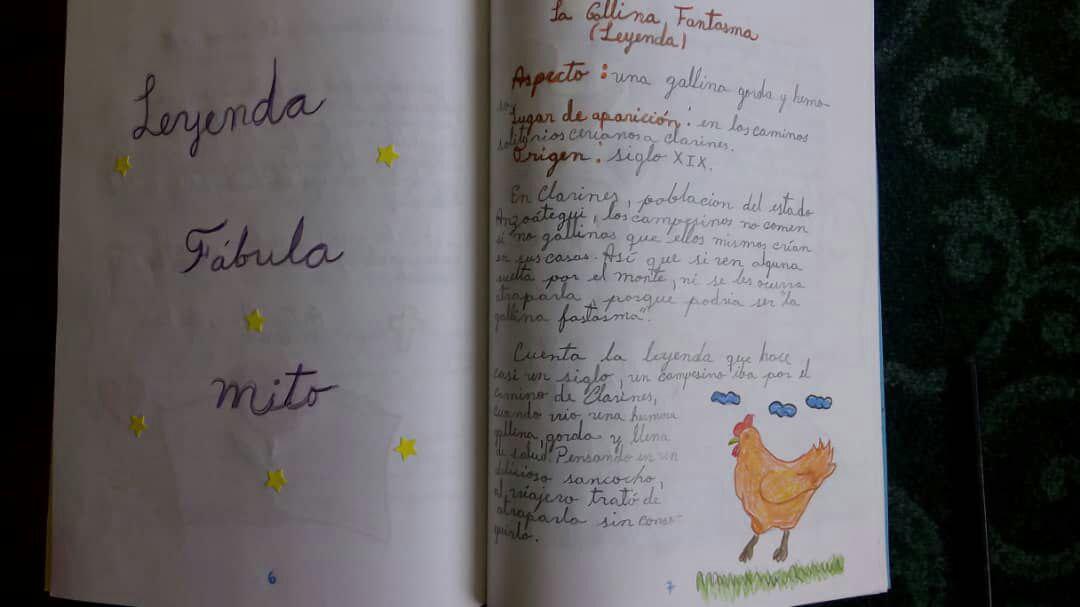 Leyenda
Fábula
mito
6
La Gallina Fantasma
(Leyenda)
Aspecto : una gallina gorda y hermo
sa.
Lugar de aparición : en los caminos
solitarios cercanos a clarines.
Origen : siglo XIX.
En Clarines, poblacion del estado
Anzoátegui, los campesinos no comen
si no gallinas que ellos mismos crían
en sus casas. Así que si ven alguna
suelta por el monte, ni se les ocurra
atraparla, porque podria ser "la
gallina fastasma".
Cuenta la leyenda que hace
casi un siglo, un campesino iba por el
camino de Clarines,
cuando vio una hermosa
gallina, gorda y llena
de salud. Pensando en un
delicioso sancocho,
el viajero trató de
atraparla sin conse-
guirlo.
7